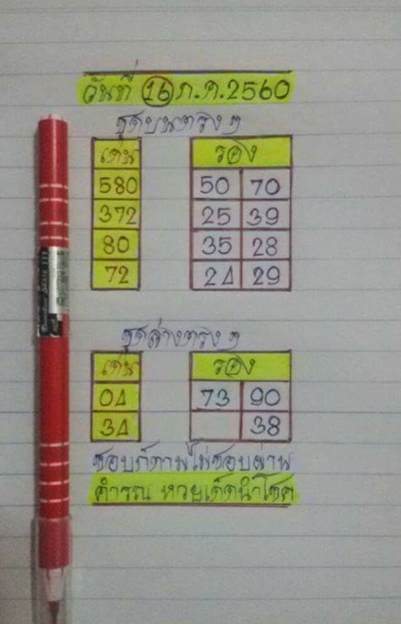 วันที่ 16 ก.ค. 2560
ชุดบนตรงๆ
เด่น รอง
580 50 70
372 25 39
80 35 28
72 24 29
ชุดล่างตรงๆ
เด่น รอง
04 73 90
34 38
ชอบก็ตามไม่ชอบผ่าน
คำรณ หวยเด็ดนำโชค